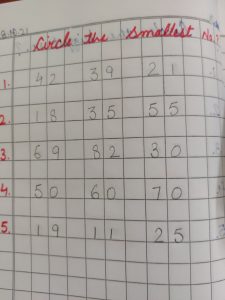 8.10.21
Circle the Smallest No.
1. 42 39 21
2. 18 35 55
3. 69 82 30
4. 50 60 70
5. 19 11 25